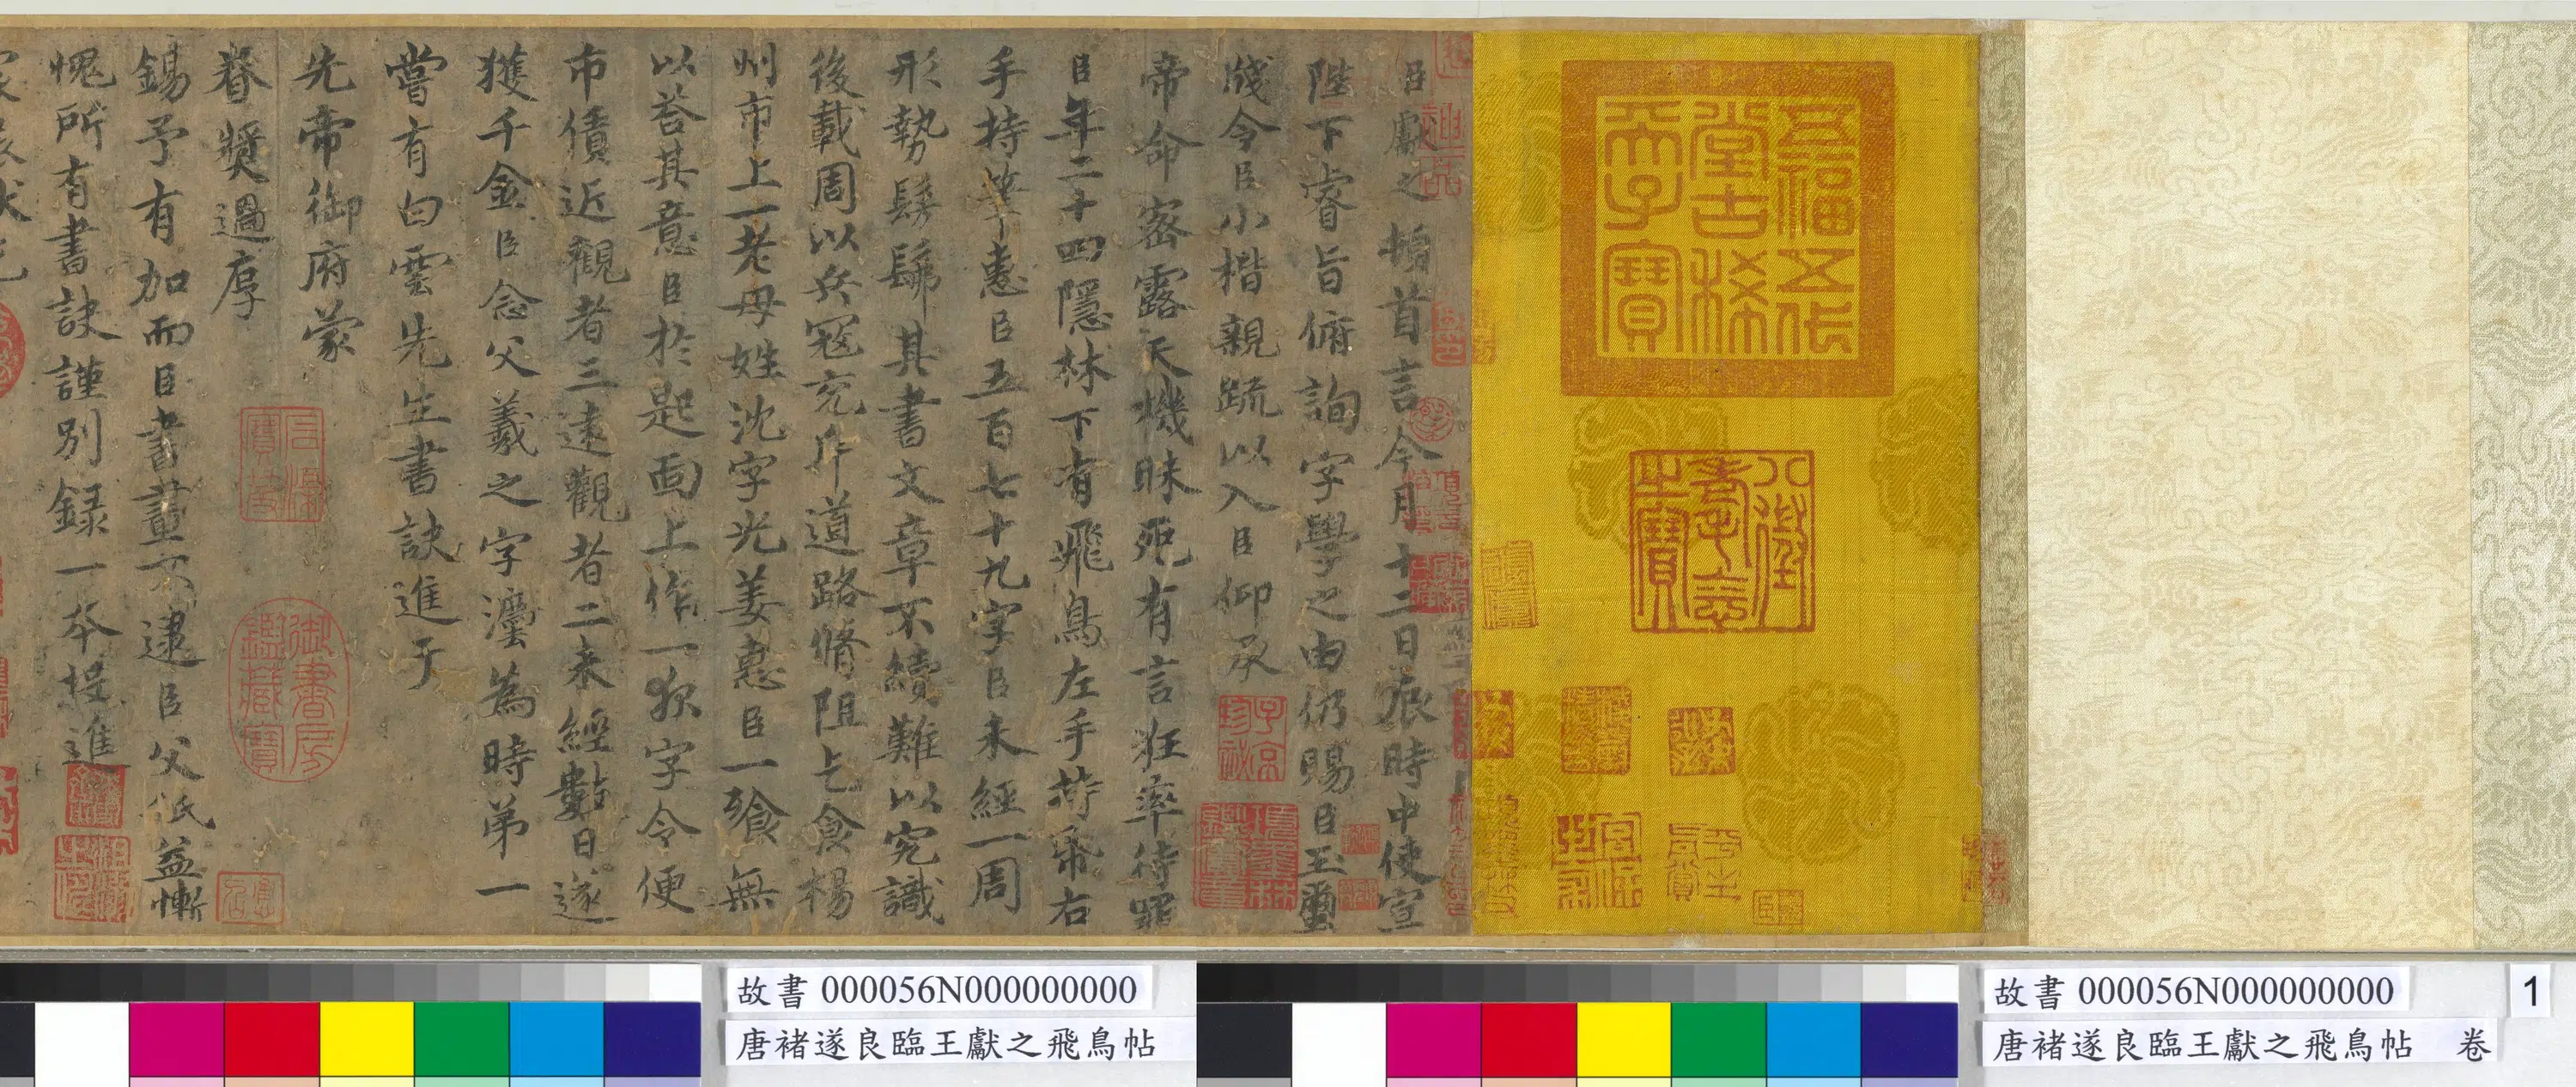 臣獻之頓首言今月十二日辰時中使宣
陛下睿旨俯詢字學之由仍賜臣玉璽
牋令臣小楷親疏以入臣仰承
帝命密露天機昧死有言狂率待罪
臣年二十四隱林下有飛鳥左手持帋右
手持筆惠臣五百七十九字臣未經一周
形勢髣髴其書文章不續難以究識
後載周以兵寇充斥道路脩阻乞食楊
州市上一老母姓沈字光姜惠臣一飱無
以荅其意臣於匙面上作一夜字令便
市債近觀者三遠觀者二未經數日遂
獲千金臣念父羲之字法為時弟一
嘗有白雲先生書訣進于
先帝御府蒙
眷奬過厚
錫予有加而臣書畫不逮臣父祇益慚
愧所有書訣謹別錄一本投進
五福五代
堂古稀
天子寶
八徵
耄念
之寶
御書房
鑑藏寶
石渠
寶笈
子京
珍祕
故書 000056N000000000
唐褚遂良臨王獻之飛鳥帖
故書 000056N000000000
1
唐褚遂良臨王獻之飛鳥帖 卷